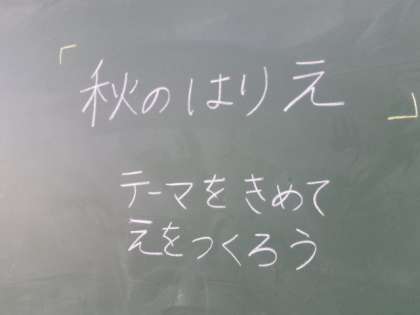 「秋のはりえ」
テーマをきめて
えをつくろう